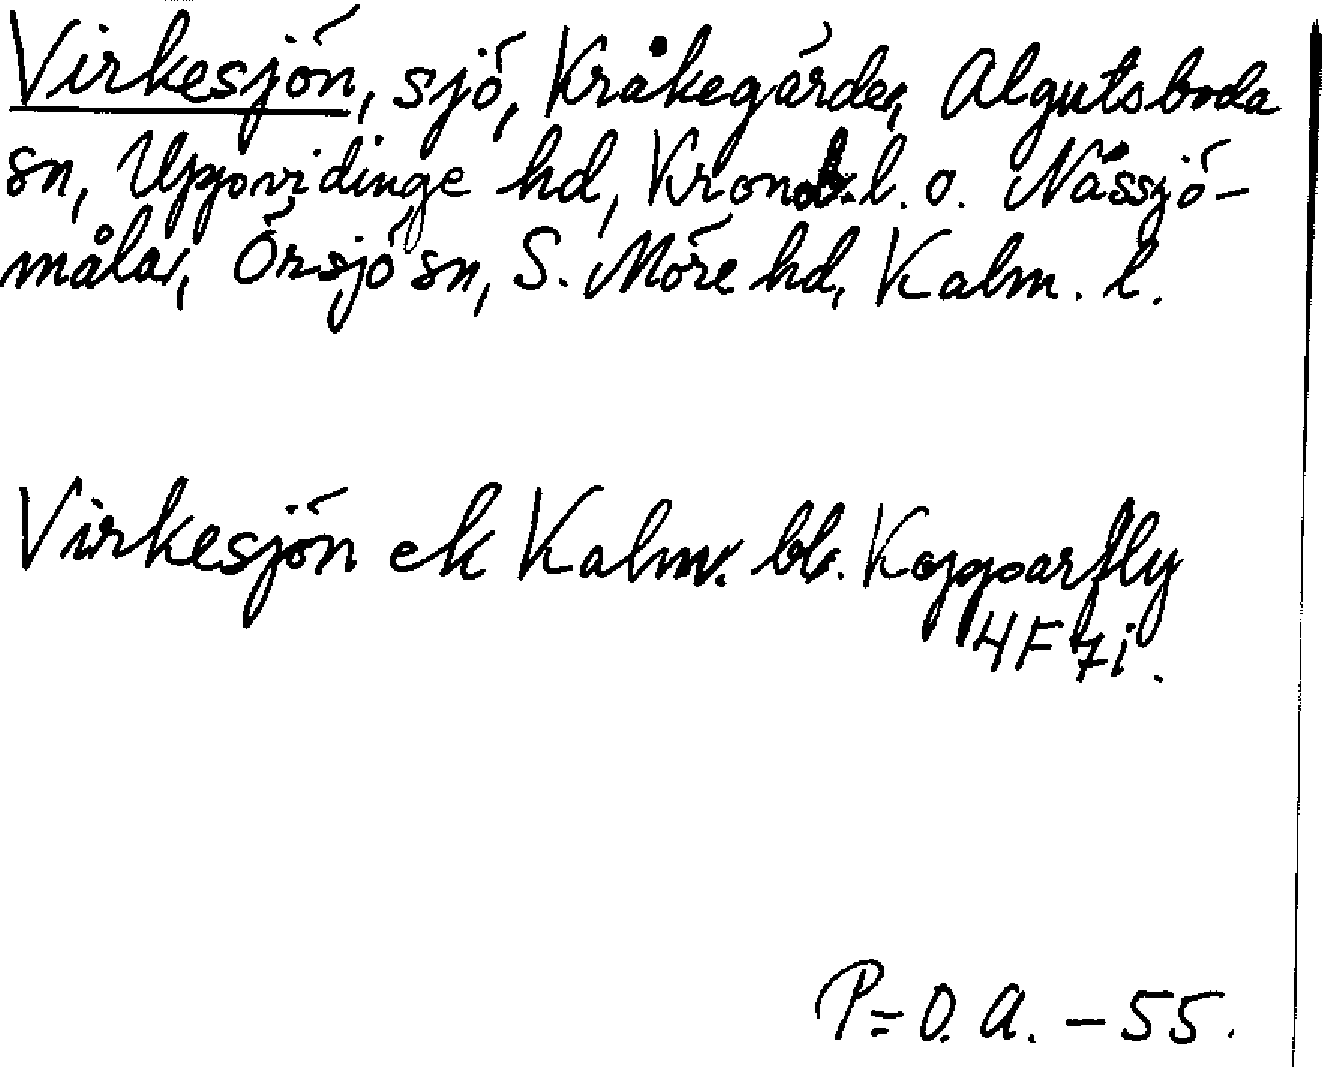 Virkesjön, sjö, Kråkegärde, Algutsboda
sn, Uppvidinge hd, Kronob. l. o. Nässjö-
måla, Örsjö sn, S. Möre hd, Kalm. l.
Virkesjön ek Kalm. bl. Kopparfly
4F 7i.
P=O.A. - 55.